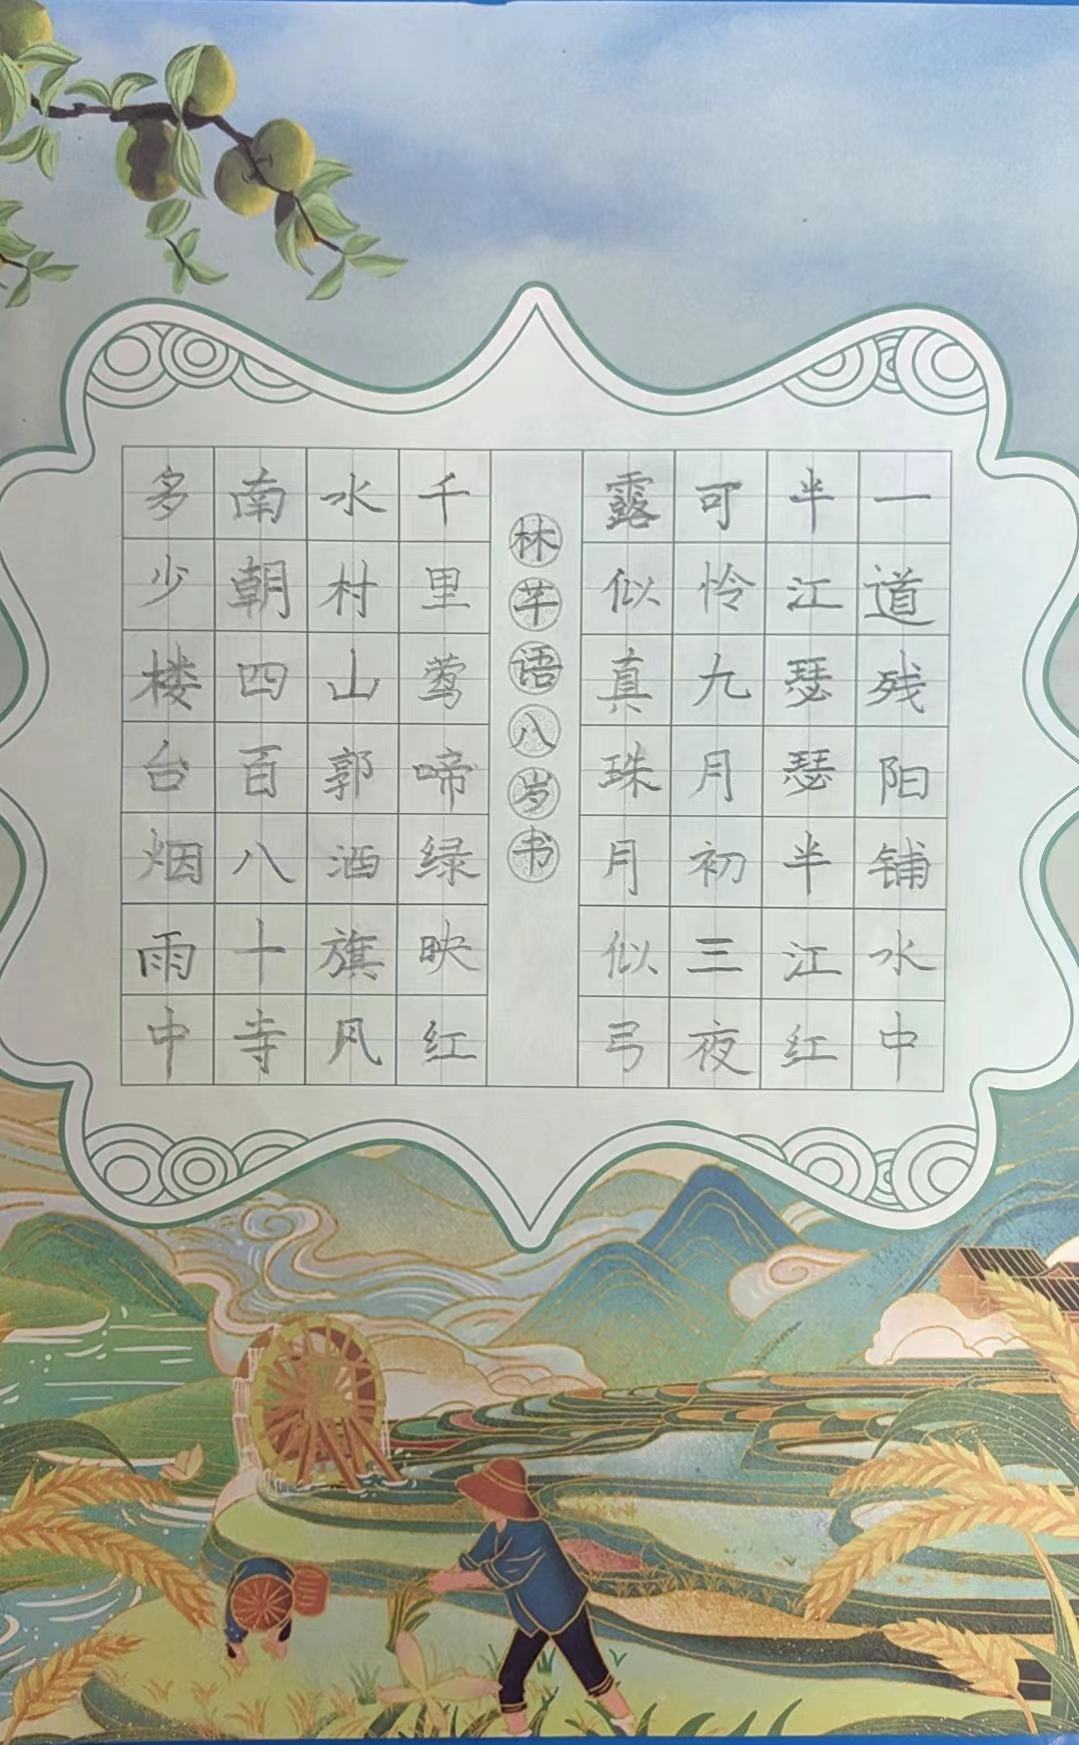 一道残阳铺水中
半江瑟瑟半江红
可怜九月初三夜
露似真珠月似弓
林芊语八岁书
千里莺啼绿映红
水村山郭酒旗风
南朝四百八十寺
多少楼台烟雨中